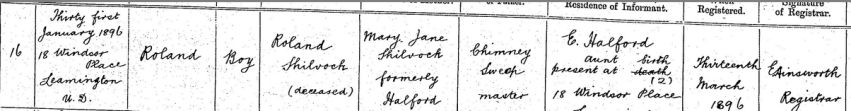 Residence of Informant.
Registered.
Signature
of Registrar.
16
Thirty first
January 1896
18 Windsor
Place
Leamington
U.D.
Roland
Boy
Roland
Shilvock
(deceased)
Mary Jane
Shilvock
formerly
Halford
Chimney
Sweep
master
E. Halford
aunt birth
present at death
(2)
18 Windsor Place
Thirteenth
March
1896
E Ainsworth
Registrar